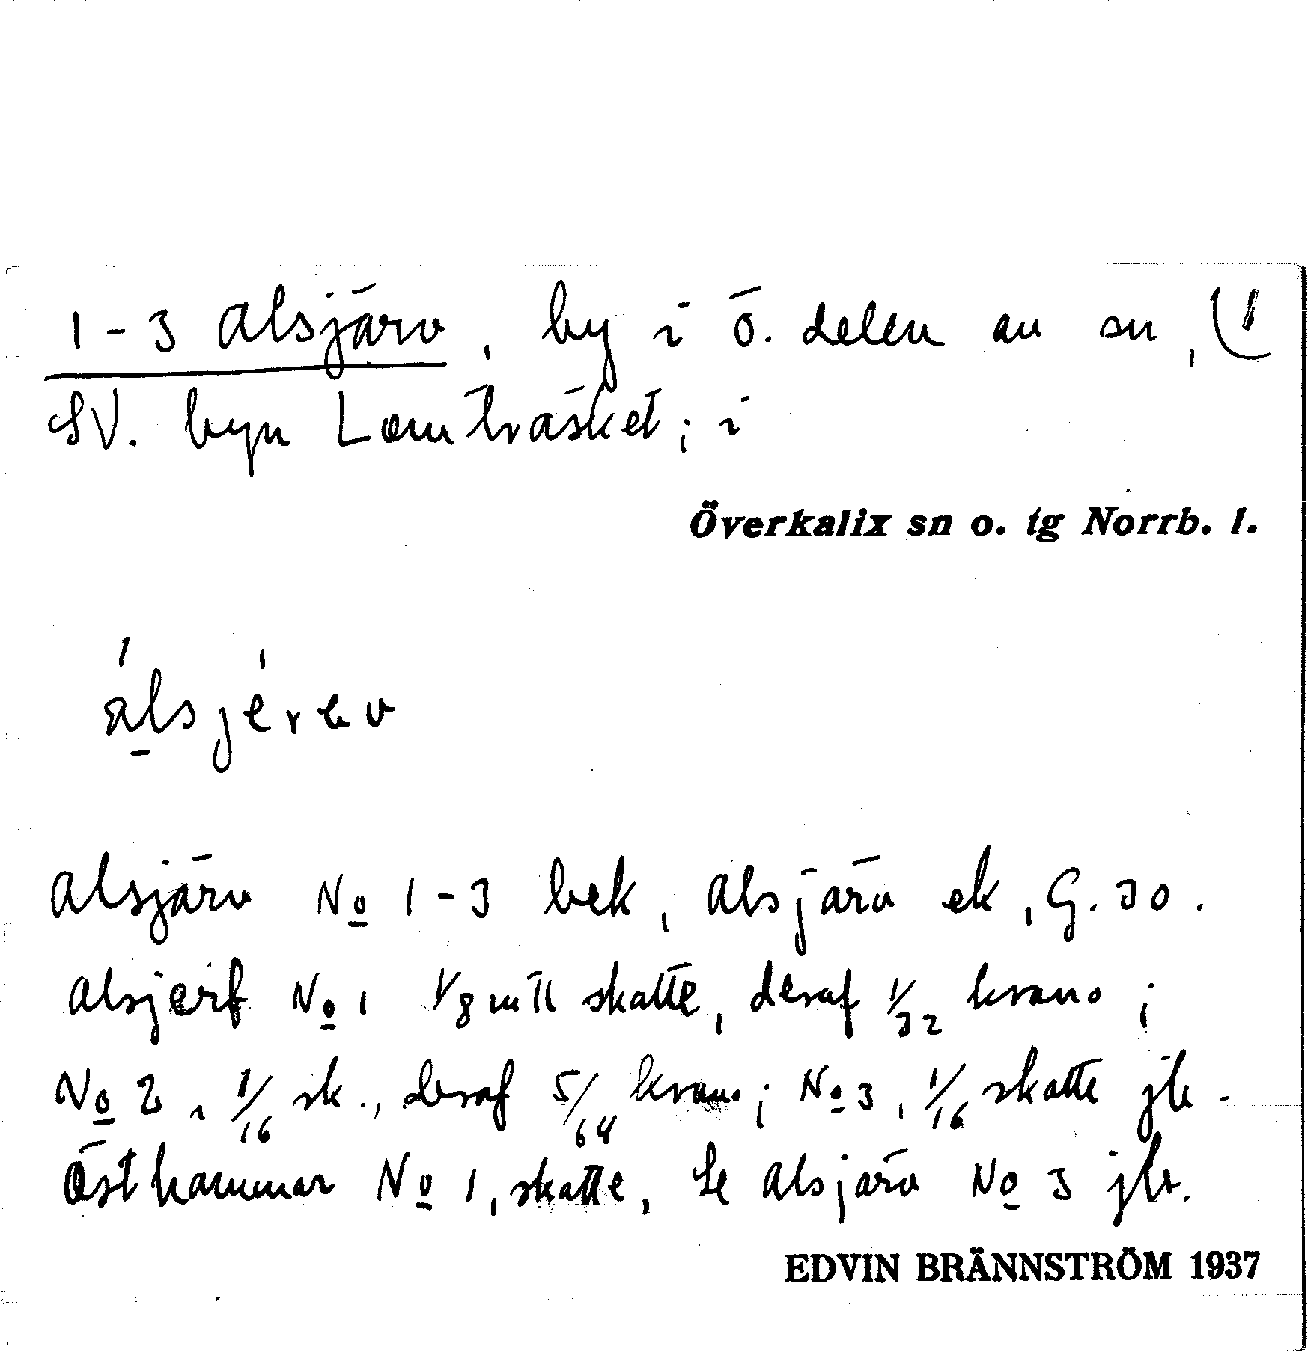 1-3 Alsjärv, by i ö. delen av sn,
SV. byn Lomträsket; i
Överkalix sn o. tg Norrb. l.
álsjérev
Alsjärv No 1-3 bek, Alsjärv ek, G. 30.
Alsjerf No 1 1/8 mtl skatte, deraf 1/32 krono;
No 2, 1/16 sk., deraf 5/64 krono; No 3, 1/16 skatte jb.
Östhammar No 1, skatte, Se Alsjärv No 3 jb.
EDVIN BRÄNNSTRÖM 1937